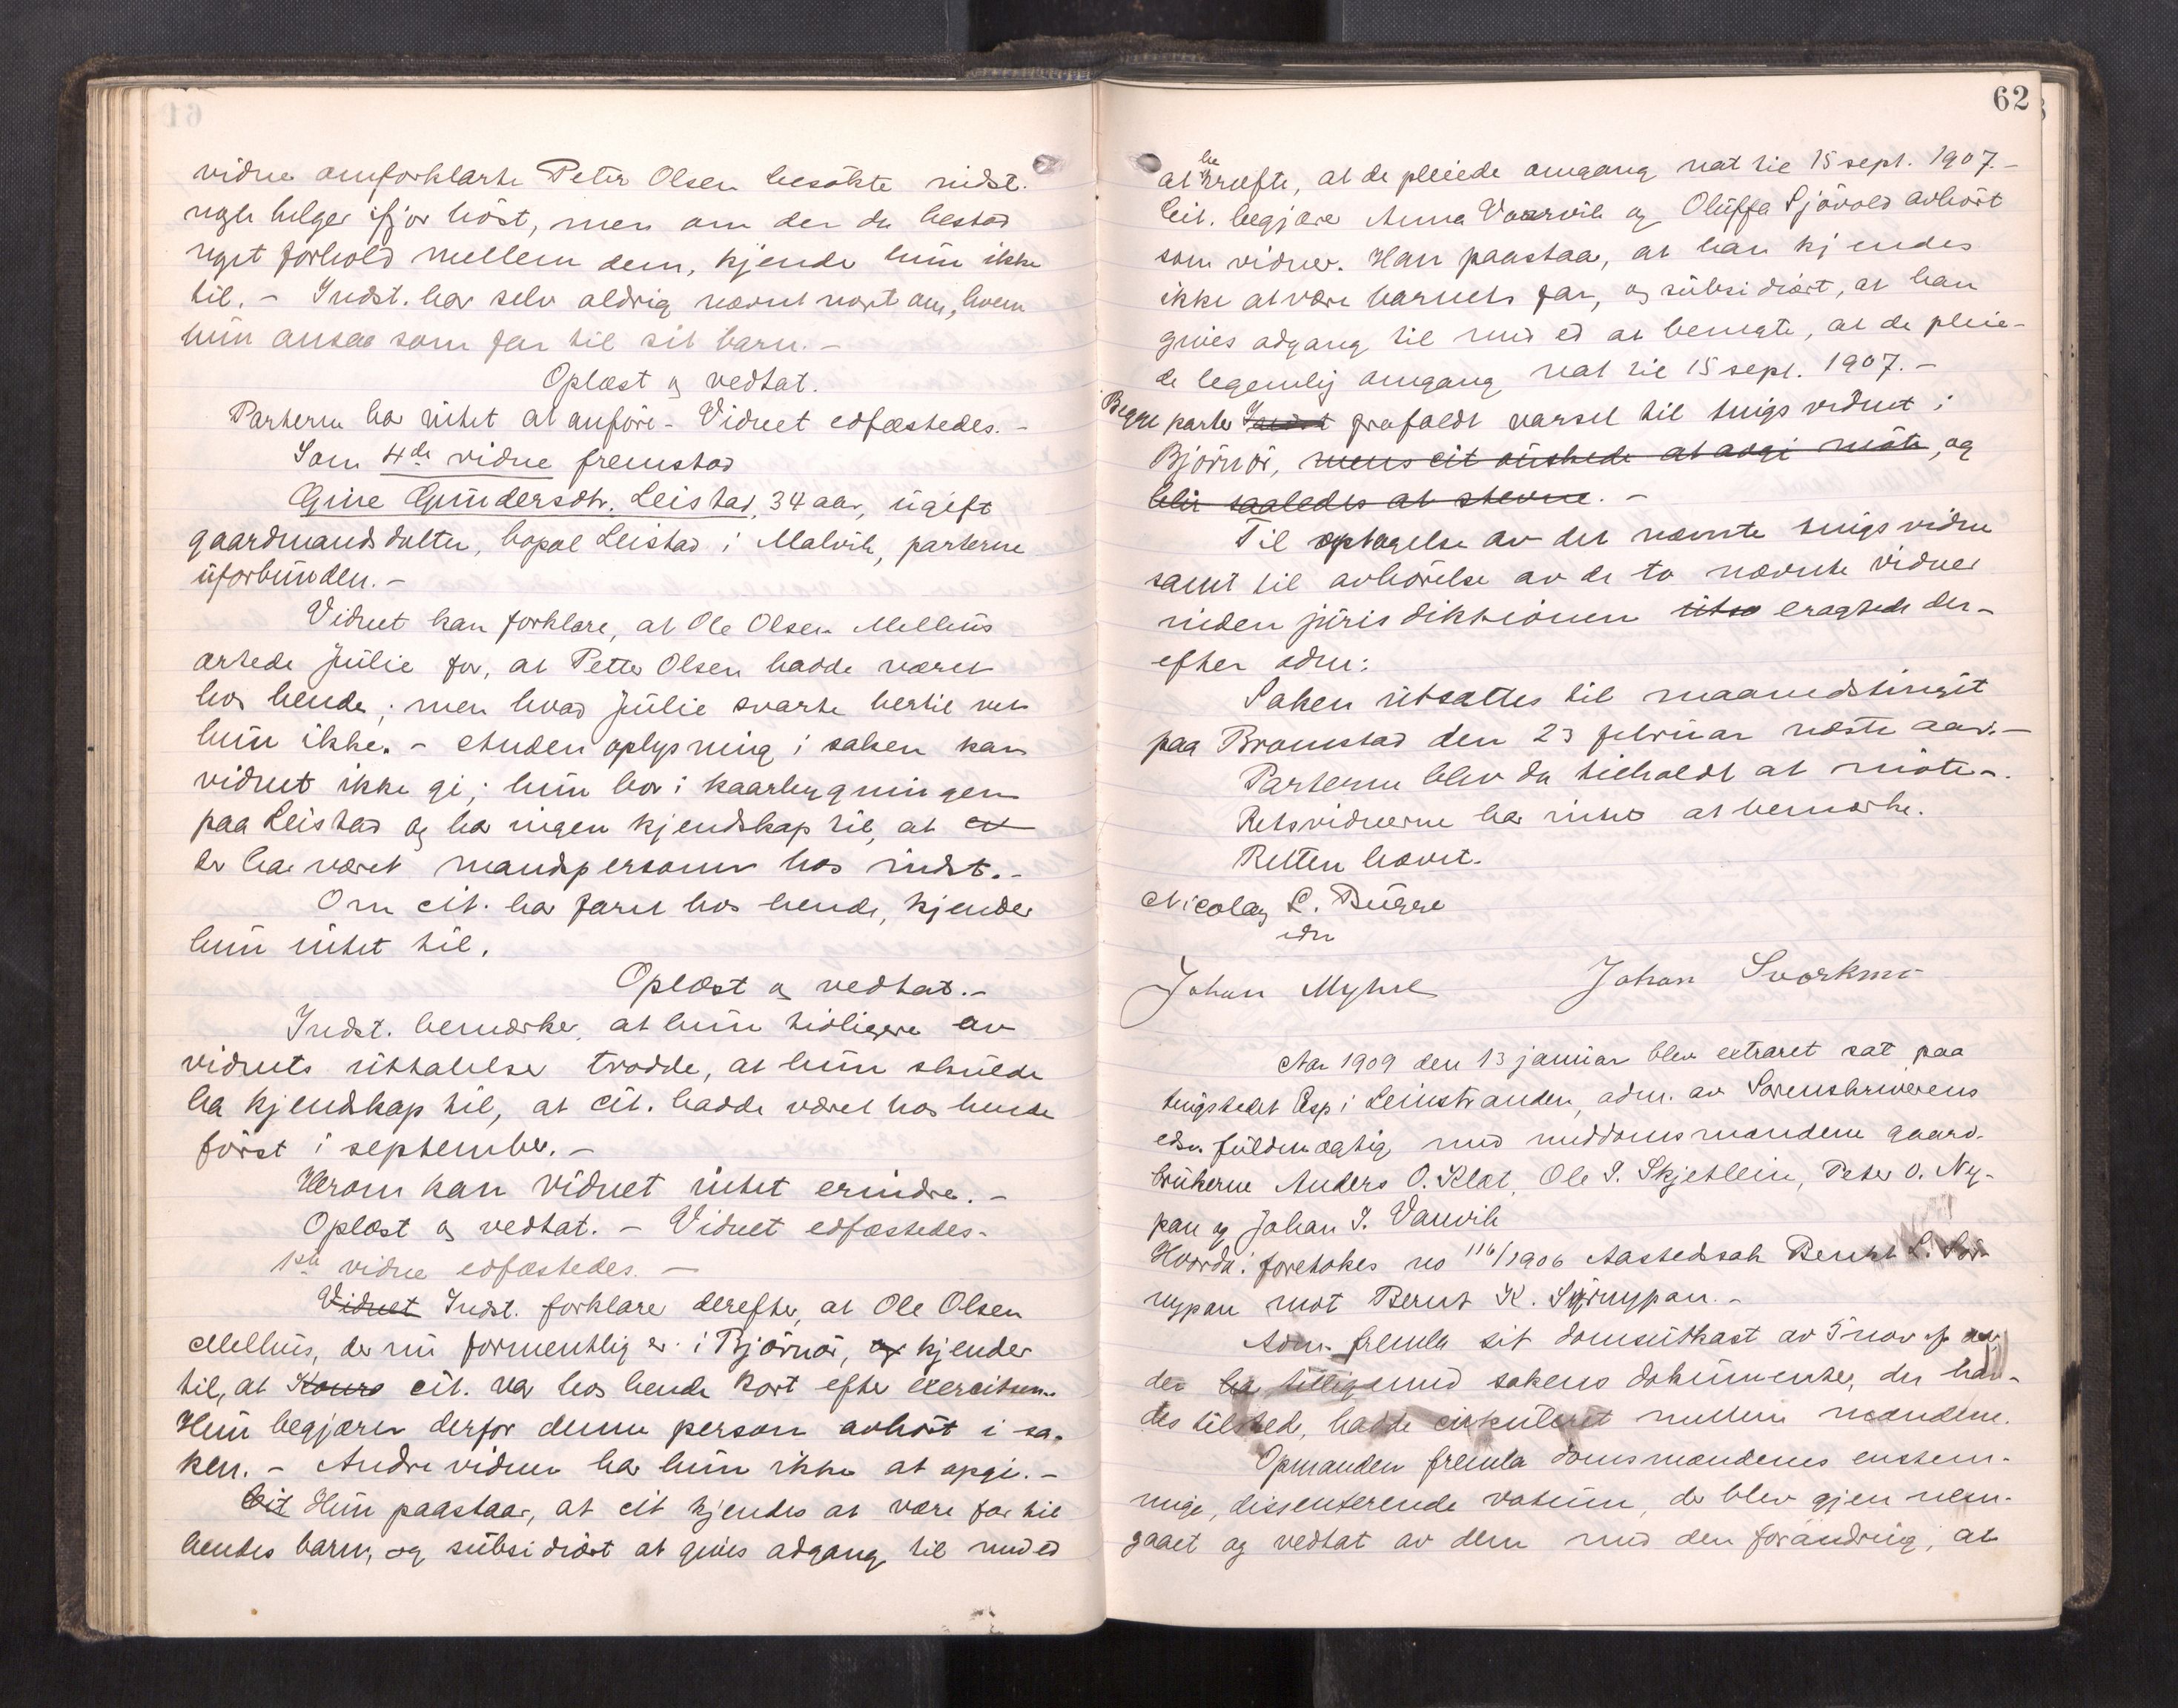 vidne omforklarte Peter Olsen besökte indst.
nogle helger ifjor höst, men om der da bestod
noget forhold mellem dem, kjende hun ikke
til. - Indst. har selv aldrig nævnt noget om, hvem
hun ansaa som far til sit barn. -
Oplæst og vedtat.
Parterne har intet at anföre - Vidnet edfæstedes. -
Som 4de vidne fremstod
Gine Gundersdtr. Leistad, 34 aar, ugift
gaardmandsdatter, bopæl Leistad i Malvik, parterne
uforbunden. -
Vidnet kan forklare, at Ole Olsen Melhus
ertede Julie for, at Petter Olsen hadde været
hos hende; men hvad Julie svarte hertil vet
hun ikke. - Anden oplysning i saken kan
vidnet ikke gi; hun bor i kaarbygningen
paa Leistad og har ingen kjendskap til, at
der har været mandspersoner hos indst. -
Om cit. har faret hos hende, kjender
hun intet til.
Oplæst og vedtat. -
Indst. bemerker, at hun tidligere av
vidnets uttalelser trodde, at hun skulde
ha kjendskap til, at cit. hadde været hos hende
först i september. -
Herom kan vidnet intet erindre. -
Oplæst og vedtat. - Vidnet edfæstedes -
1ste vidne edfæstedes. -
Vidnet Indst. forklarer derefter, at Ole Olsen
Melhus, der nu formentlig er i Björnör, og kjender
til, at cit. var hos hende kort efter exercitsen.
Hun begjærer derfor denne person avhört i sa-
ken. - Andre vidner har hun ikke at opgi. -
Cit Hun paastaar, at cit kjendes at være far til
hendes barn, og subsidiært at gives adgang til med ed
62
at be
kræfte, at de pleiede omgang nat til 15 sept. 1907. -
Cit. begjærer Anna Vaarvik og Oluffa Sjövold avhört
som vidner. Han paastaar, at han kjendes
ikke at være barnets far, og subsidiært, at han
gives adgang til med ed at benegte, at de pleie-
de legemlig omgang nat til 15 sept. 1907. -
Begge parter Indst frafaldt varsel til tingsvidnet i
Björnör, mens cit önskede at avgi möte, og
blir saaledes at stevne. -
Til optagelse av det nævnte tingsvidne
samt til avhörelse av de to nævnte vidner
inden jurisdiktionen eragtede der-
efter adm:
Saken utsættes til maanedstinget
paa Bromstad den 23 februar næste aar. -
Parterne blev da tilholdt at möte -.
Retsvidnerne har intet at bemerke.
Retten hævet.
Nicolay L. Bugge
edsv
Johan Myhre Johan Svorkmo
Aar 1909 den 13 januar blev extraret sat paa
tingstedet Esp i Leinstranden, adm. av Sorenskriverens
edsv. fuldmægtig med meddomsmændene gaard-
brukerne Anders O. Klæt, Ole P. Skjetlein, Peter O. Ny-
pan og Johan J. Vanvik
Hvorda: foretokes no 116/1906 Aastedssak Bernt L. Sör-
nypan mot Bernt K. Sörnypan. -
Adm. fremla sit domsutkast av 5 nov f. aar,
der tilligemed sakens dokumenter, der hav-
des tilstede, hadde cirkuleret mellem mændene.
Opmanden fremla domsmændenes enstem-
mige, dissenterende votum, der blev gjennem-
gaaet og vedtat av dem med den forandring, at